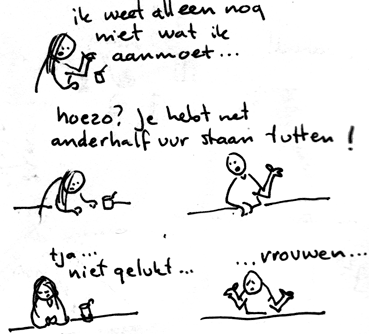 ik weet alleen nog
niet wat ik
aanmoet...
hoezo? je hebt net
anderhalf uur staan tutten!
tja...
niet gelukt...
...vrouwen...